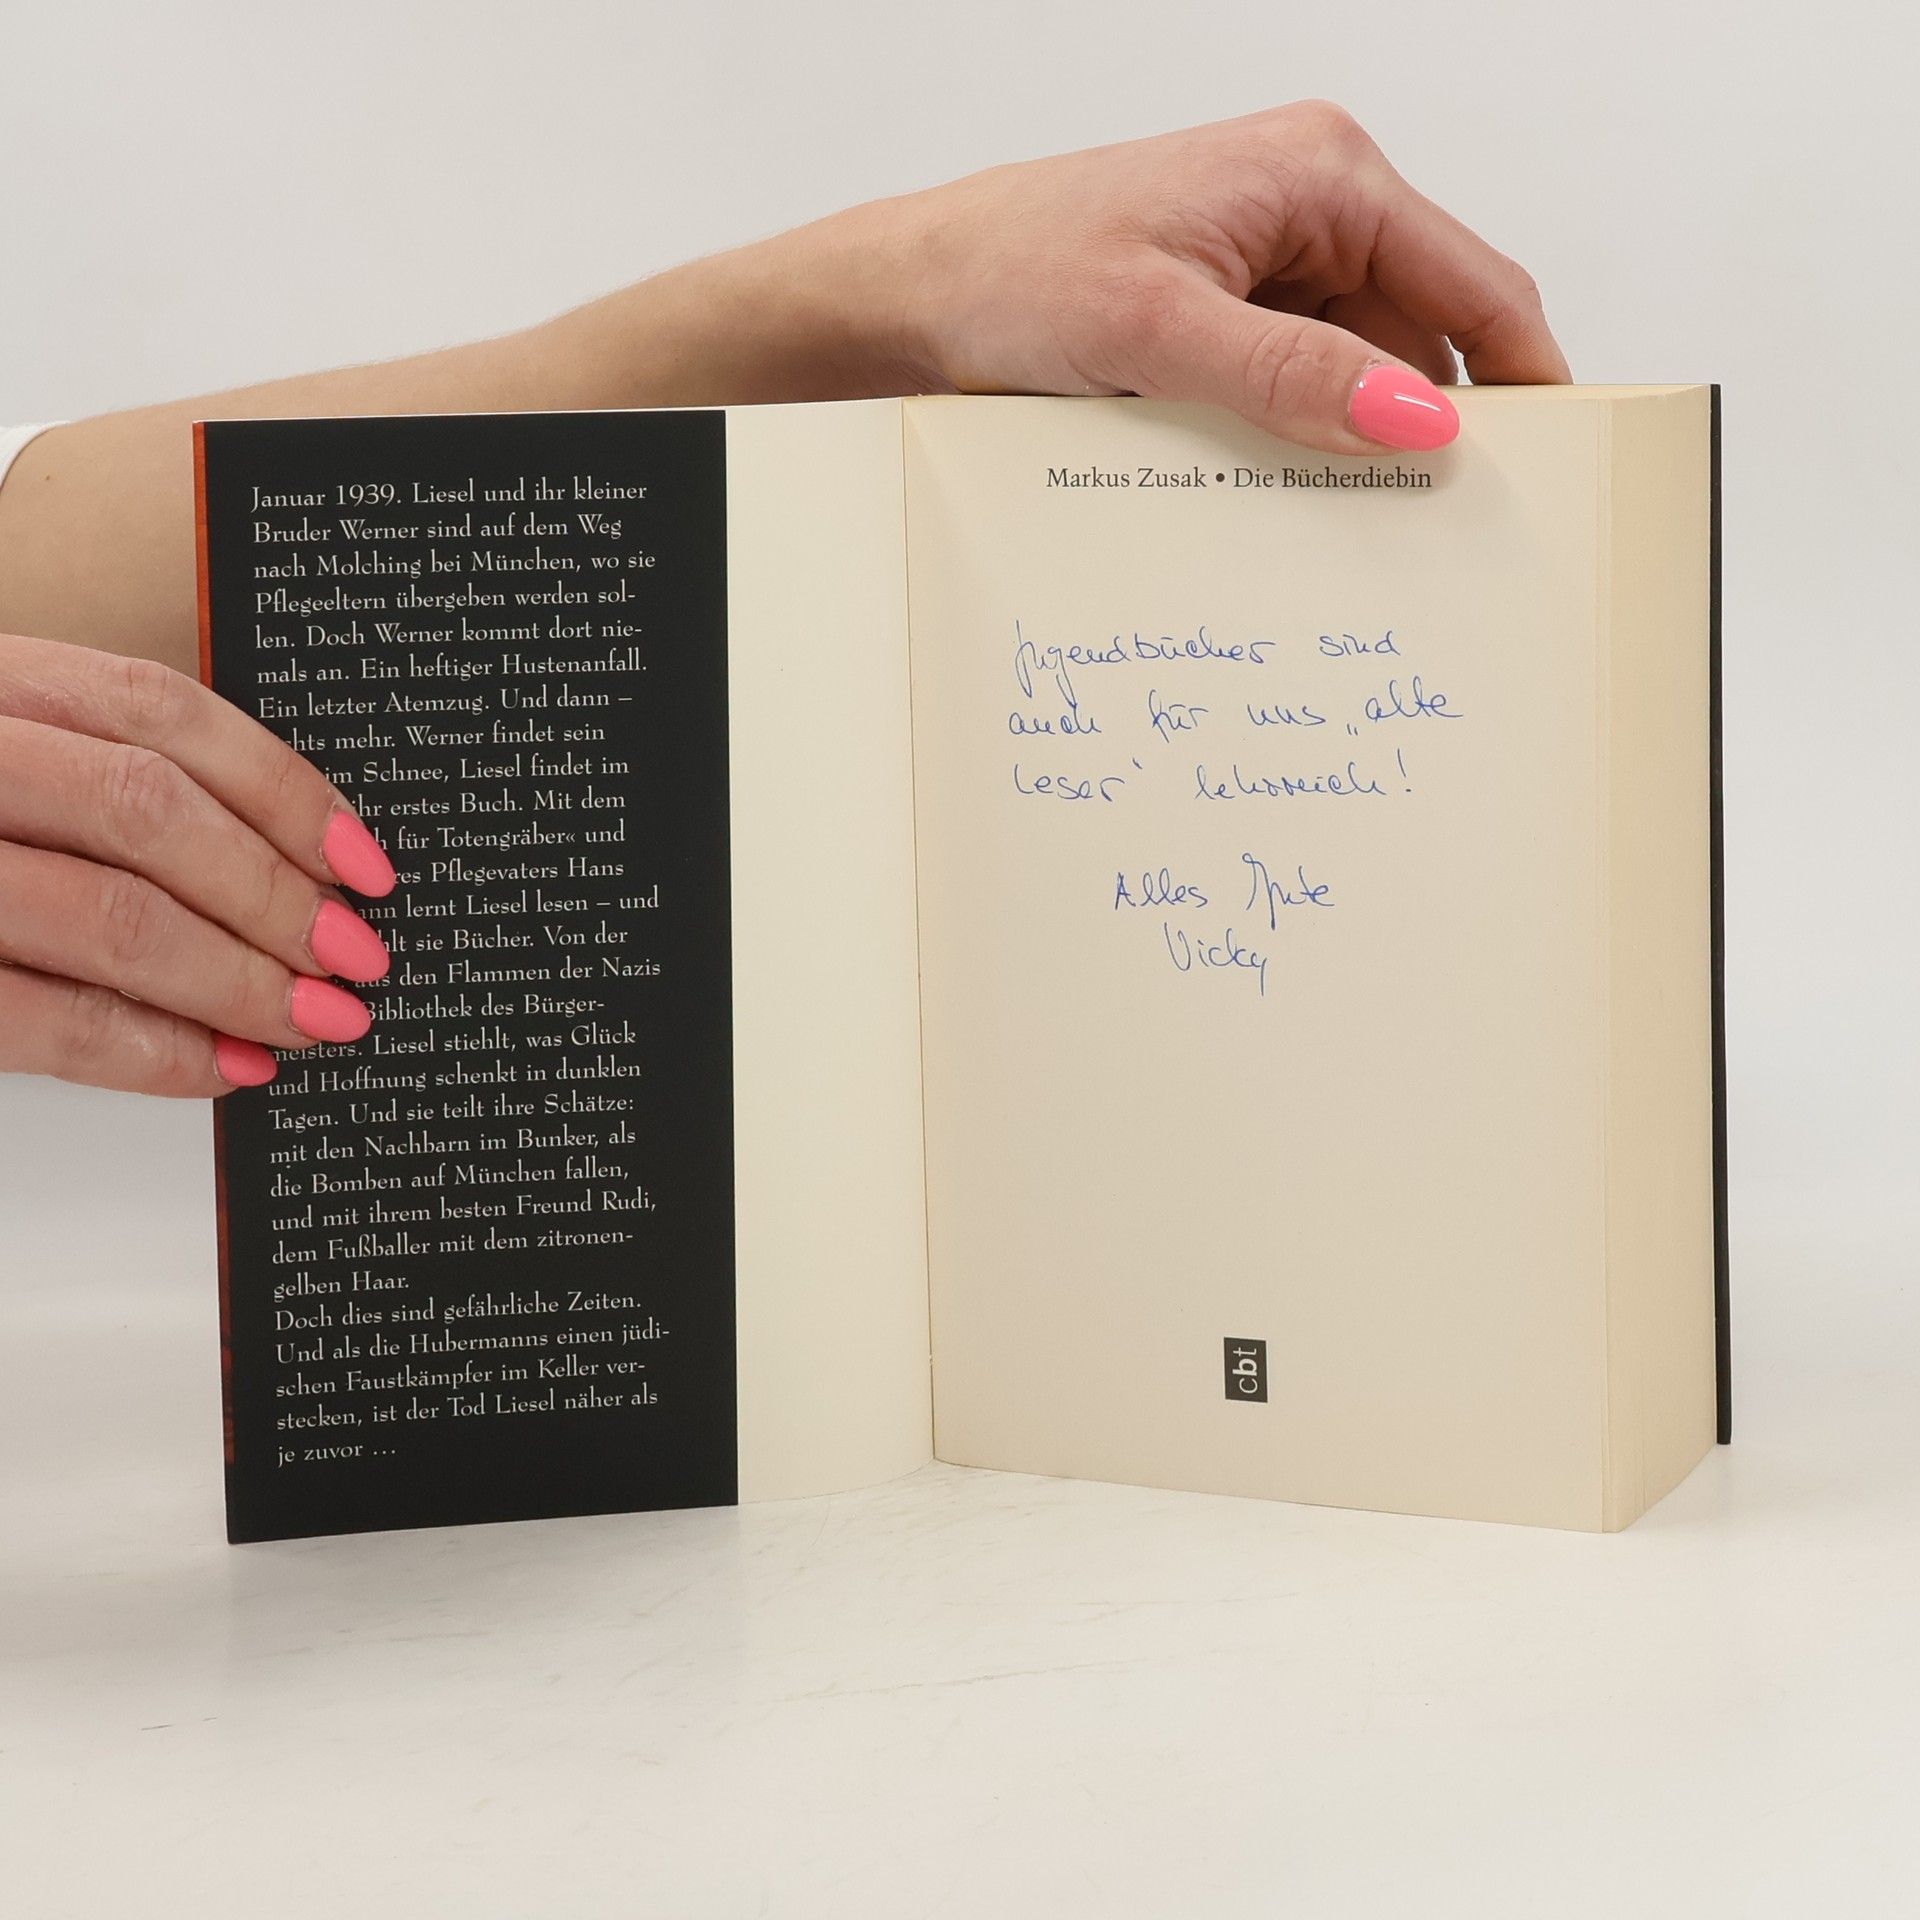 Januar 1939. Liesel und ihr kleiner
Bruder Werner sind auf dem Weg
nach Molching bei München, wo sie
Pflegeeltern übergeben werden sol-
len. Doch Werner kommt dort nie-
mals an. Ein heftiger Hustenanfall.
Ein letzter Atemzug. Und dann –
mehr. Werner findet sein
im Schnee, Liesel findet im
ihr erstes Buch. Mit dem
für Totengräber« und
Pflegevaters Hans
lernt Liesel lesen – und
sie Bücher. Von der
aus den Flammen der Nazis
Bibliothek des Bürger-
meisters. Liesel stiehlt, was Glück
und Hoffnung schenkt in dunklen
Tagen. Und sie teilt ihre Schätze:
mit den Nachbarn im Bunker, als
die Bomben auf München fallen,
und mit ihrem besten Freund Rudi,
dem Fußballer mit dem zitronen-
gelben Haar.
Doch dies sind gefährliche Zeiten.
Und als die Hubermanns einen jüdi-
schen Faustkämpfer im Keller ver-
stecken, ist der Tod Liesel näher als
je zuvor ...
Markus Zusak • Die Bücherdiebin
Jugendbücher sind
auch für uns „alte
Leser“ lehrreich!
Alles Gute
Vicky
cbt